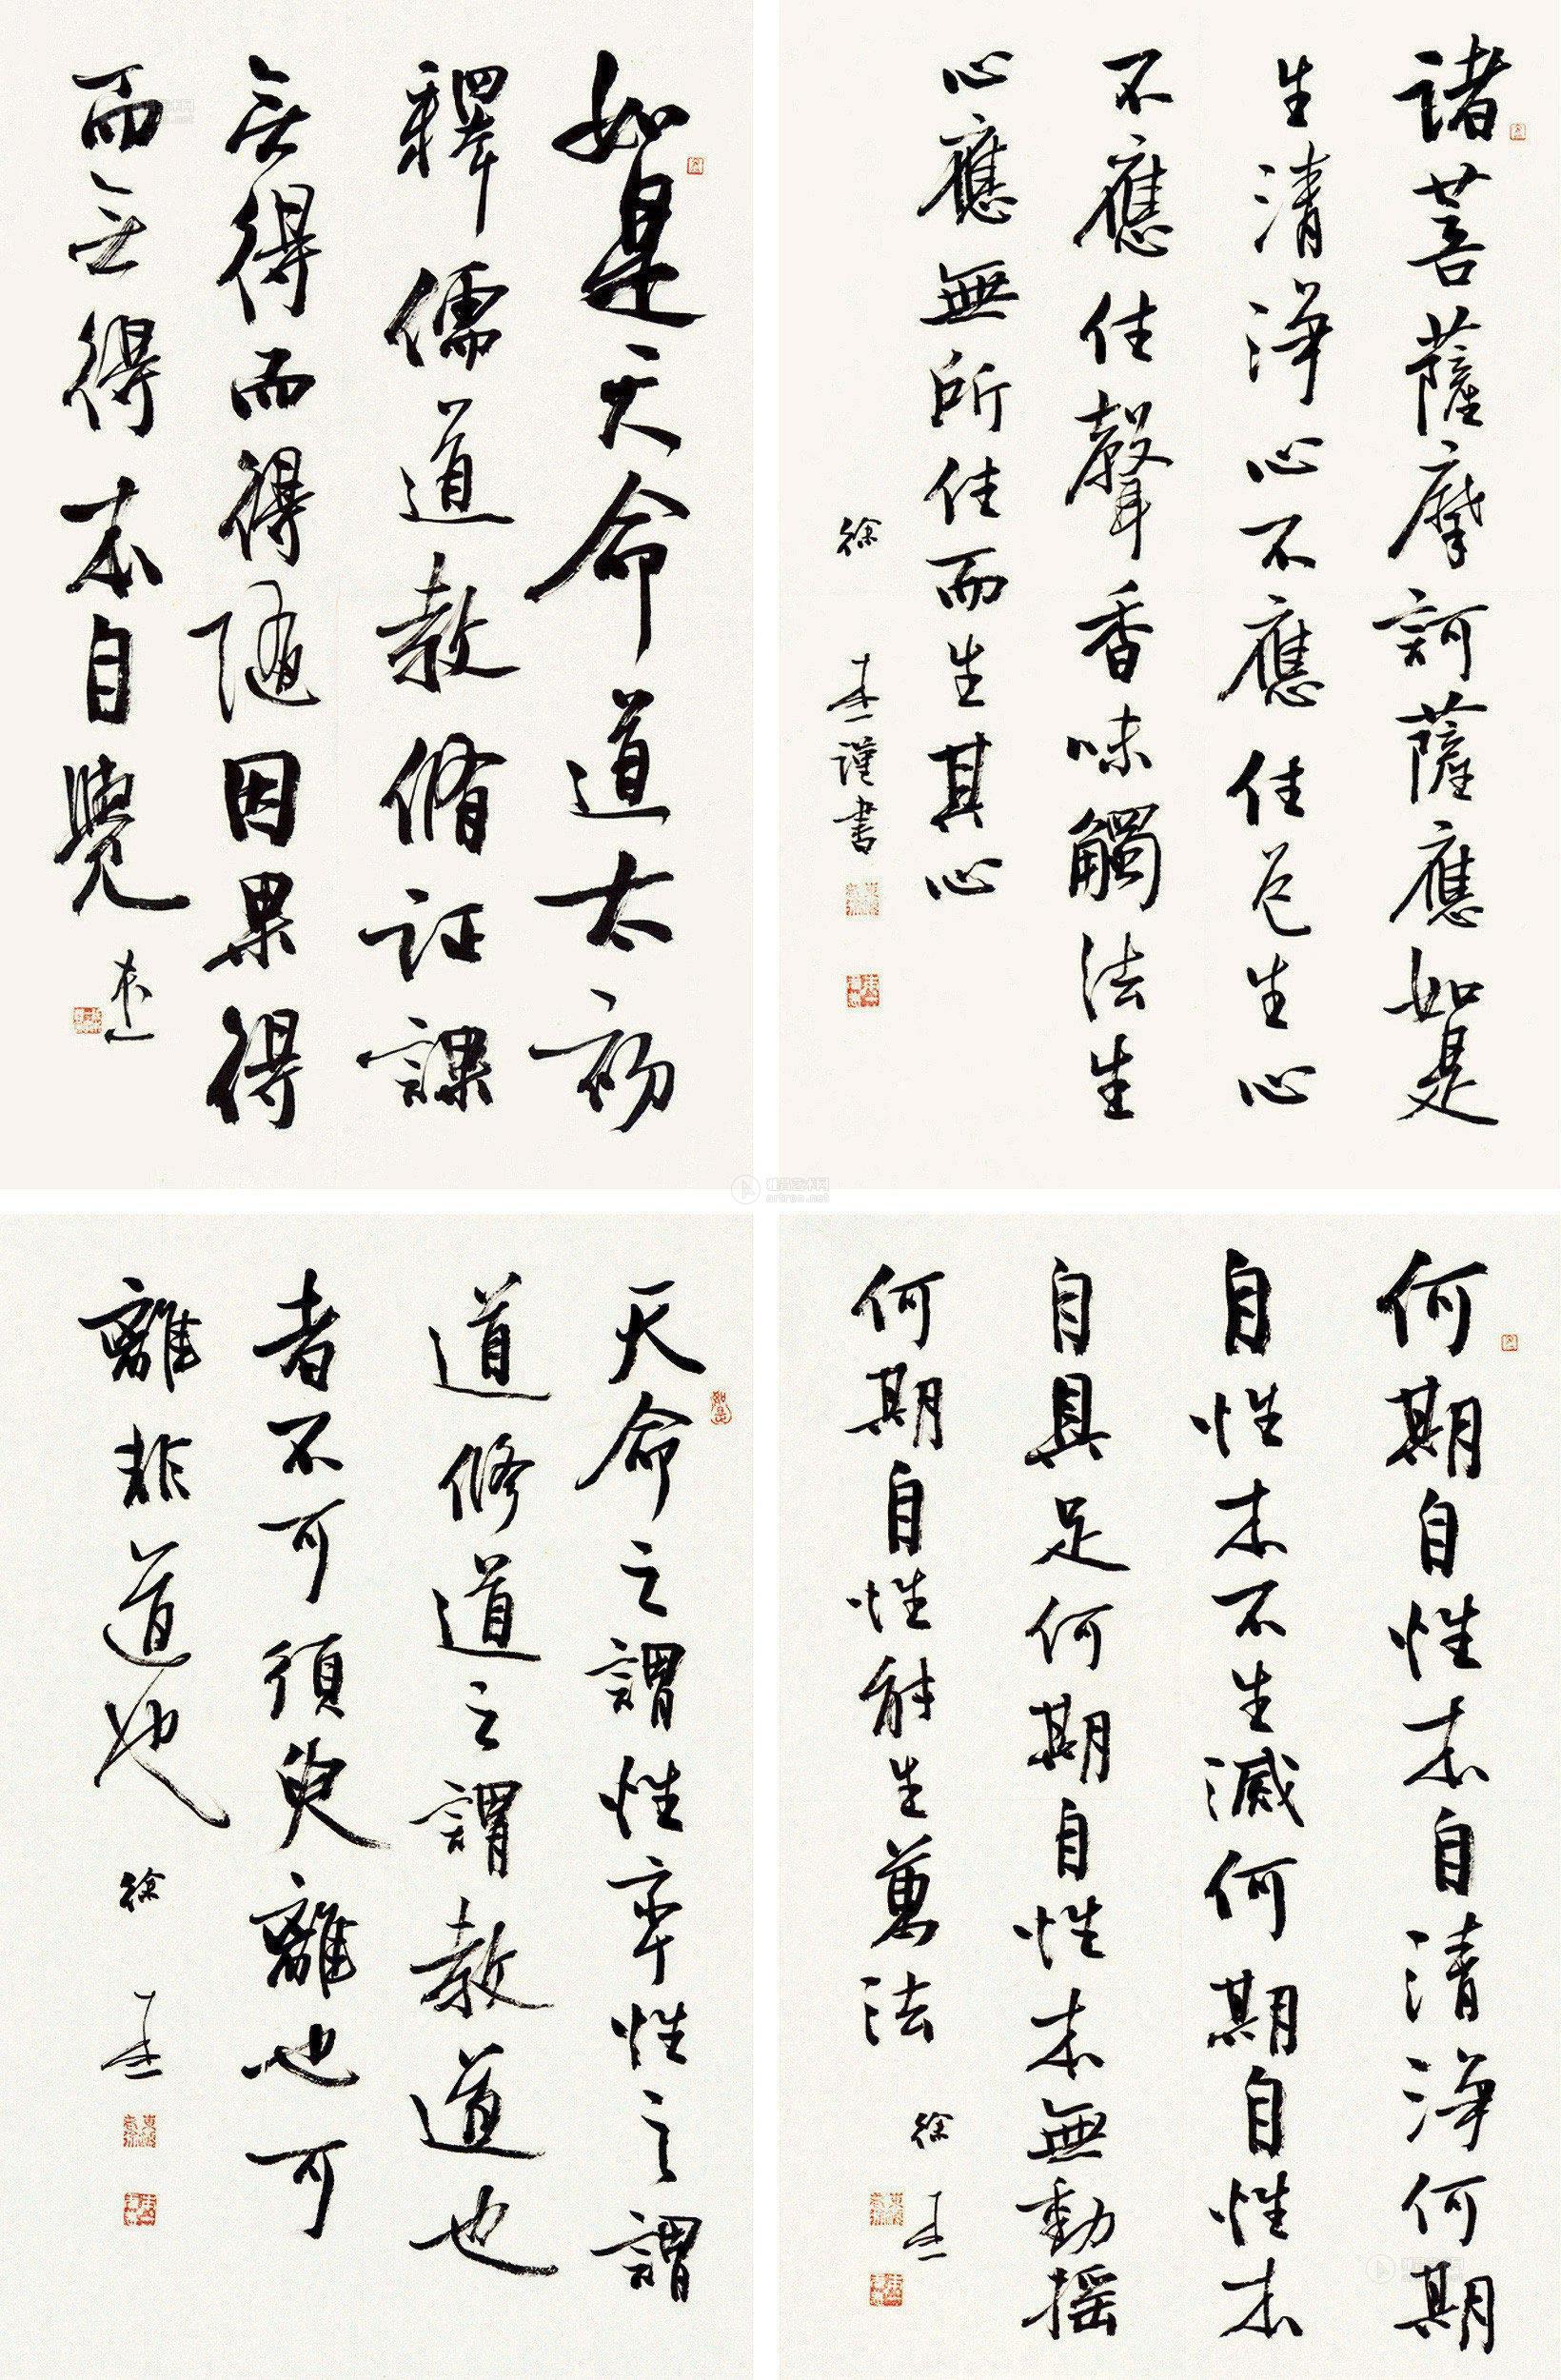 諸菩薩摩訶薩應如是
生清淨心不應住色生心
不應住聲香味觸法生
心應無所住而生其心
徐 謹書
如是天命道太初
釋儒道教脩证課
无得而得随因果得
而无得本自覺
何期自性本自清淨何期
自性本不生滅何期自性本
自具足何期自性本無動搖
何期自性能生萬法
徐
天命之謂性率性之謂
道修道之謂教道也
者不可須臾離也可
離非道也
徐